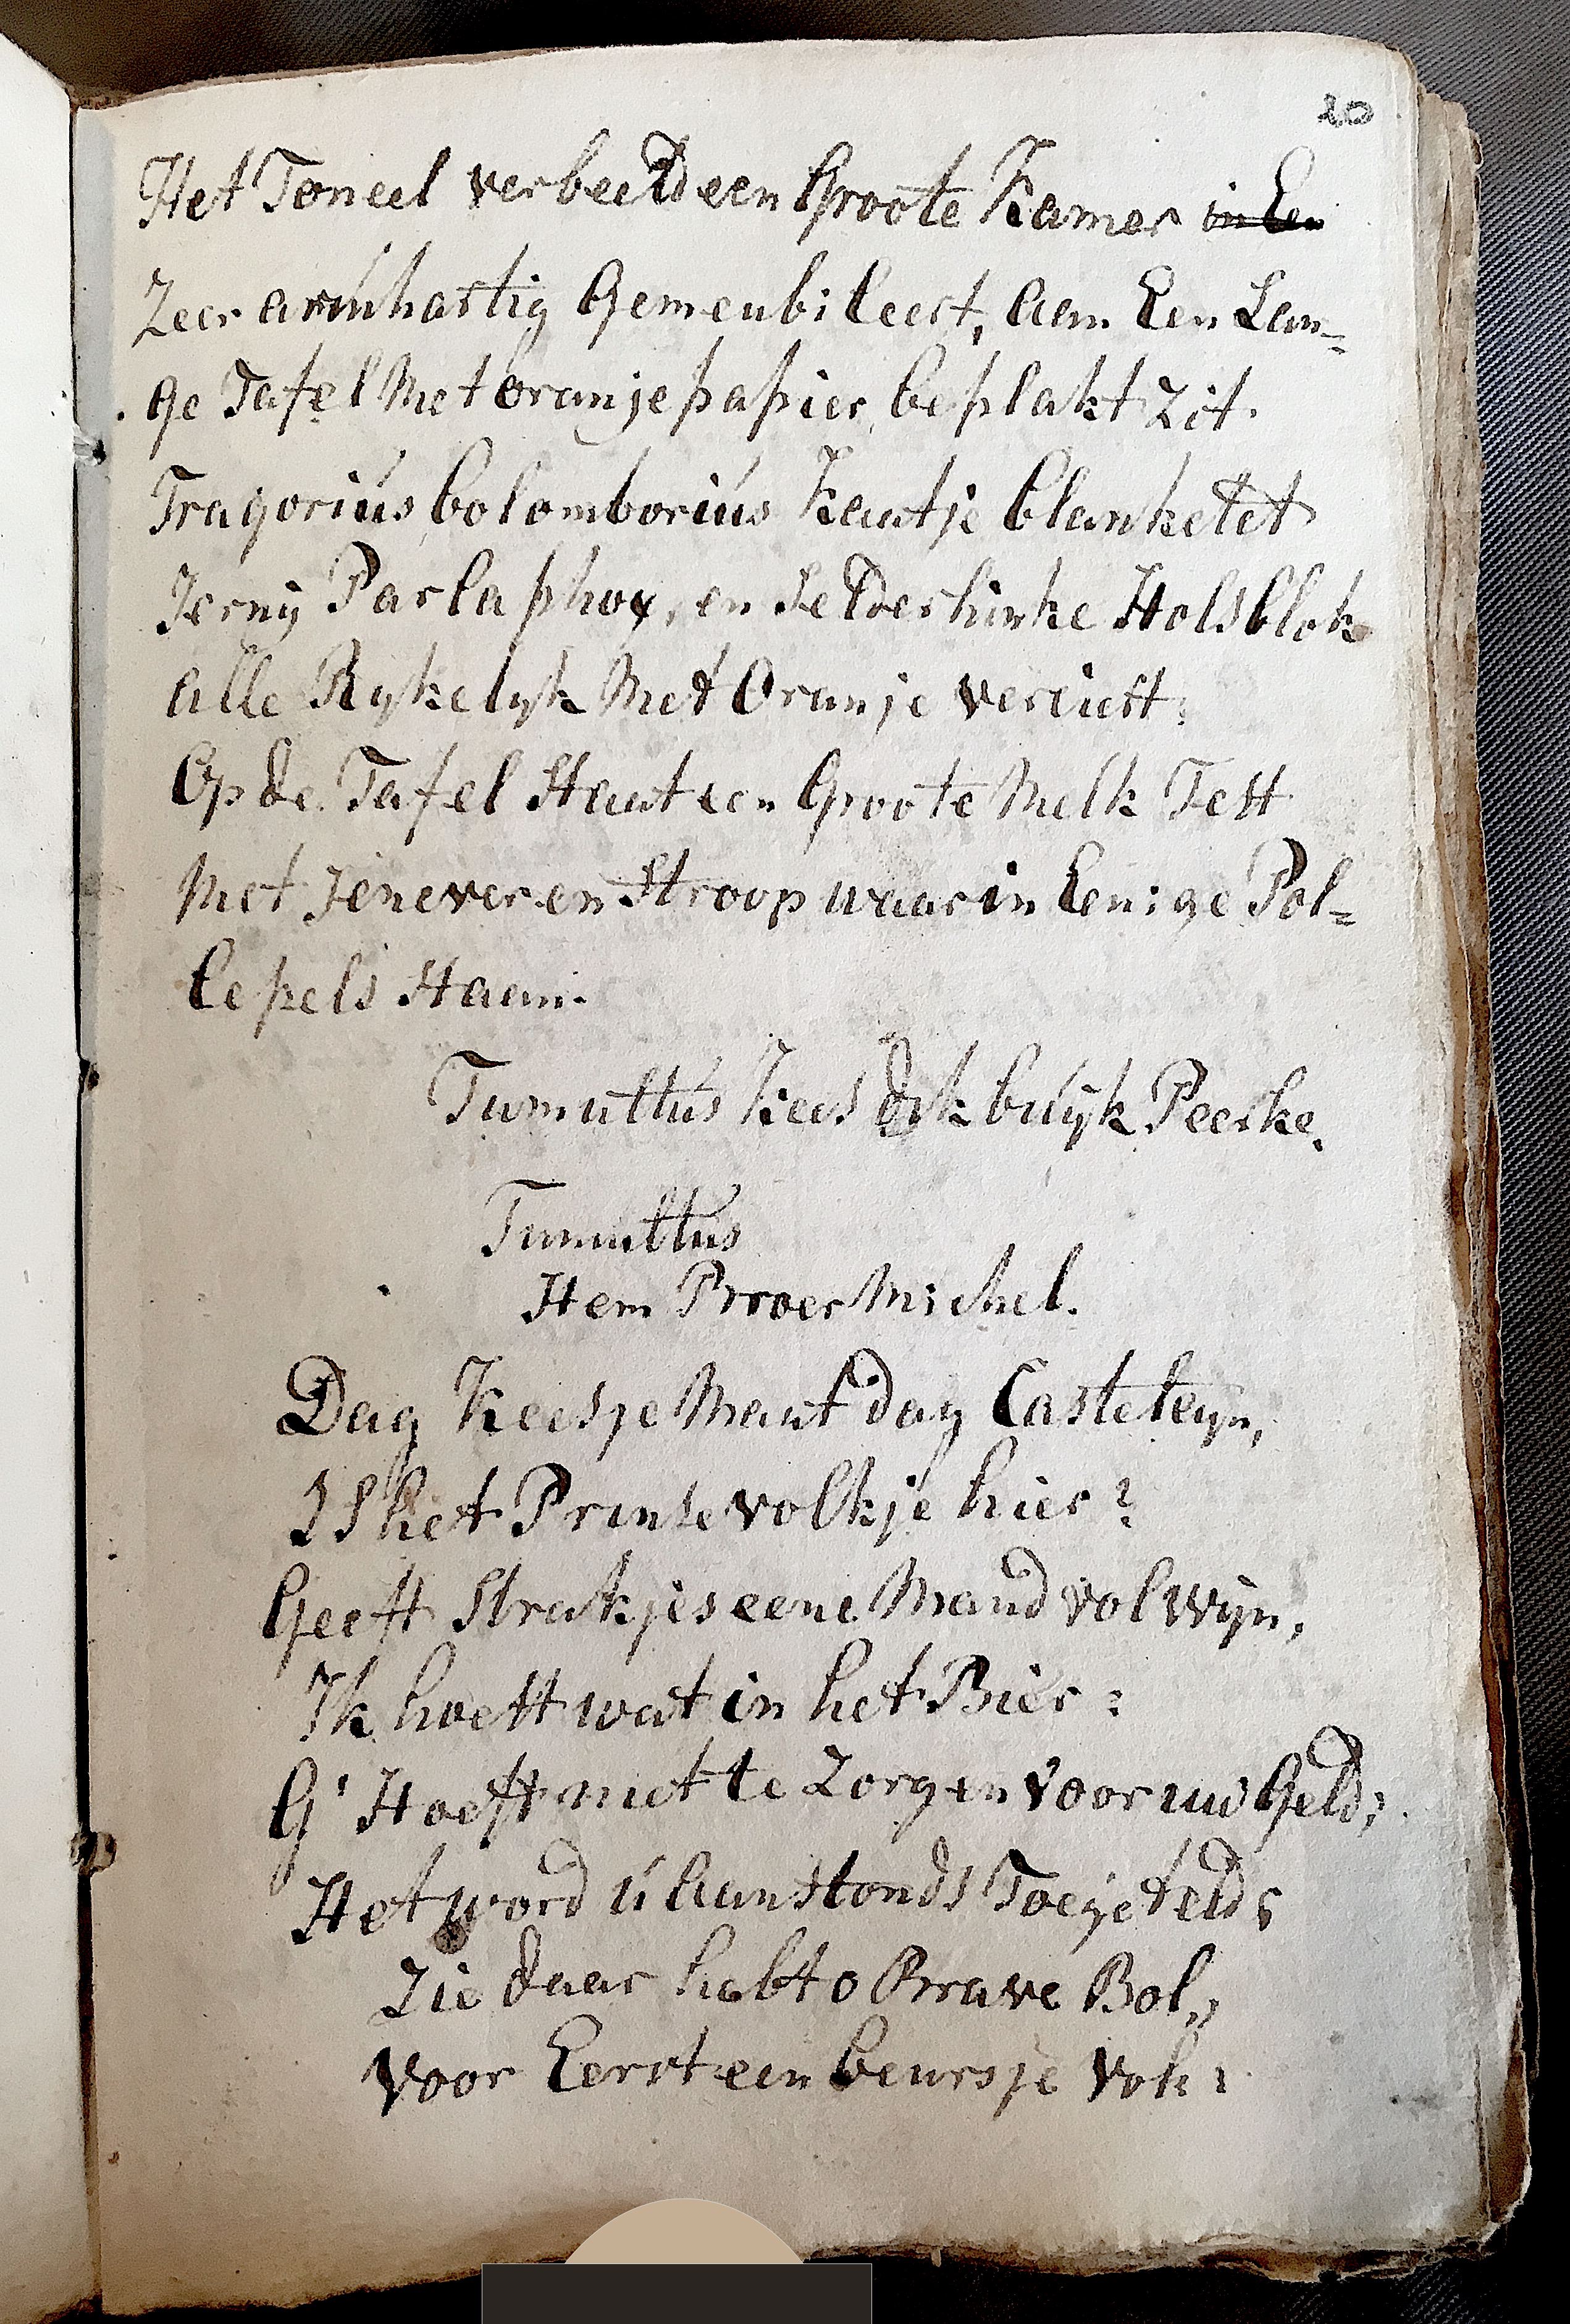 20
Het Toneel verbeeld een Groote Kamer in Een
Zeer armhartig Gemeubileert, aan Een Lan=
ge Tafel Met oranje papier beplakt Zit.
Tragorius bolomborius Kaatje blanketet
Jerny Parlaphoy, en Selderhinke Holsblok
alle Rykelyk Met Oranje verciert:
Op de Tafel Staat een Groote Melk Test
Met Jenever en Stroop waar in Eenige Pol=
lepels Staan.
Tumultus Kees dik buijk Peerke.
Tumultus
Hem Proer Michel.
Dag Keesje Maat dag Casteleyn,
Is het Prinse volkje hier?
Geeft Strakjes eene Mand vol wijn,
Ik hoest wat in het Bier:
G' Hoeft niet te Zorgen voor uw Geld;
Het word ú Aanstonds Toegeteld;
Zie daar hebt o Brave Bol,,
voor Eerst een beursje Vol: